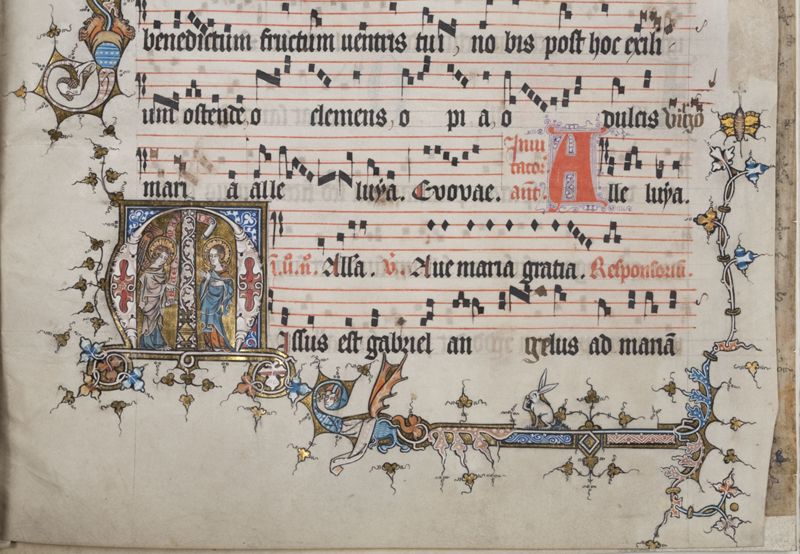 benedictum fructum uentris tui, no bis post hoc exili
um ostende, o clemens, o pi a, o dulcis virgo
mari a alle luya. Euouae. Inui tator. añe. Alle luya.
i. u. n. Alla. v. Aue maria gratia. Responsoriū.
Missus est gabriel an gelus ad mariā